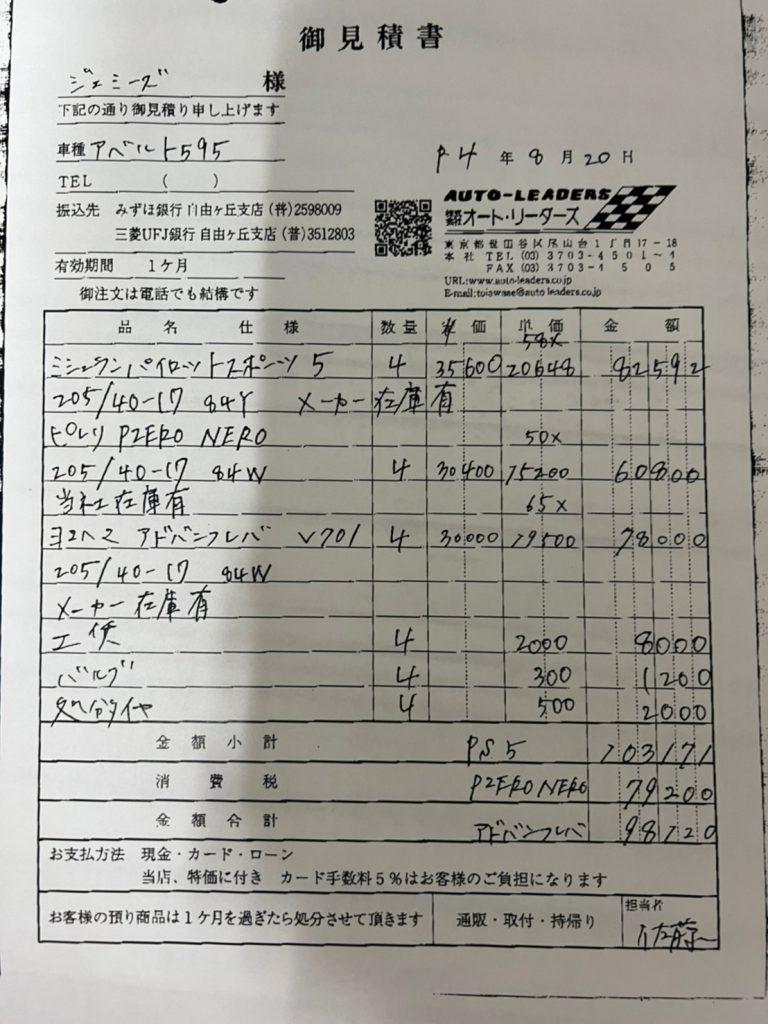 御見積書
ジェミーズ 様
下記の通り御見積り申し上げます
車種 アバルト595
TEL ( )
R4 年 8 月 20 日
振込先 みずほ銀行 自由ヶ丘支店 (普)2598009
三菱UFJ銀行 自由ヶ丘支店 (普)3512803
有効期間 1ヶ月
御注文は電話でも結構です
AUTO-LEADERS
株式会社オート・リーダーズ
東京都世田谷区尾山台1丁目17-18
本社 TEL (03) 3703-4501~1
FAX (03) 3703-1505
URL:www.auto-leaders.co.jp
E-mail:toiawase@auto leaders.co.jp
品名 仕様 数量 単価 単価 金額
58%
ミシュラン パイロットスポーツ 5 4 35600 20648 82592
205/40-17 84Y メーカー在庫有
ピレリ PZERO NERO 50%
205/40-17 84W 4 30400 15200 60800
当社在庫有 65%
ヨコハマ アドバンフレバ V701 4 30000 19500 78000
205/40-17 84W
メーカー在庫有
工供 4 2000 8000
バルブ 4 300 1200
処分タイヤ 4 500 2000
金額小計 PS5 103171
消費税 PZERO NERO 79200
金額合計 アドバンフレバ 98120
お支払方法 現金・カード・ローン
当店、特価に付き カード手数料5%はお客様のご負担になります
お客様の預り商品は1ケ月を過ぎたら処分させて頂きます 通販・取付・持帰り 担当者
佐藤